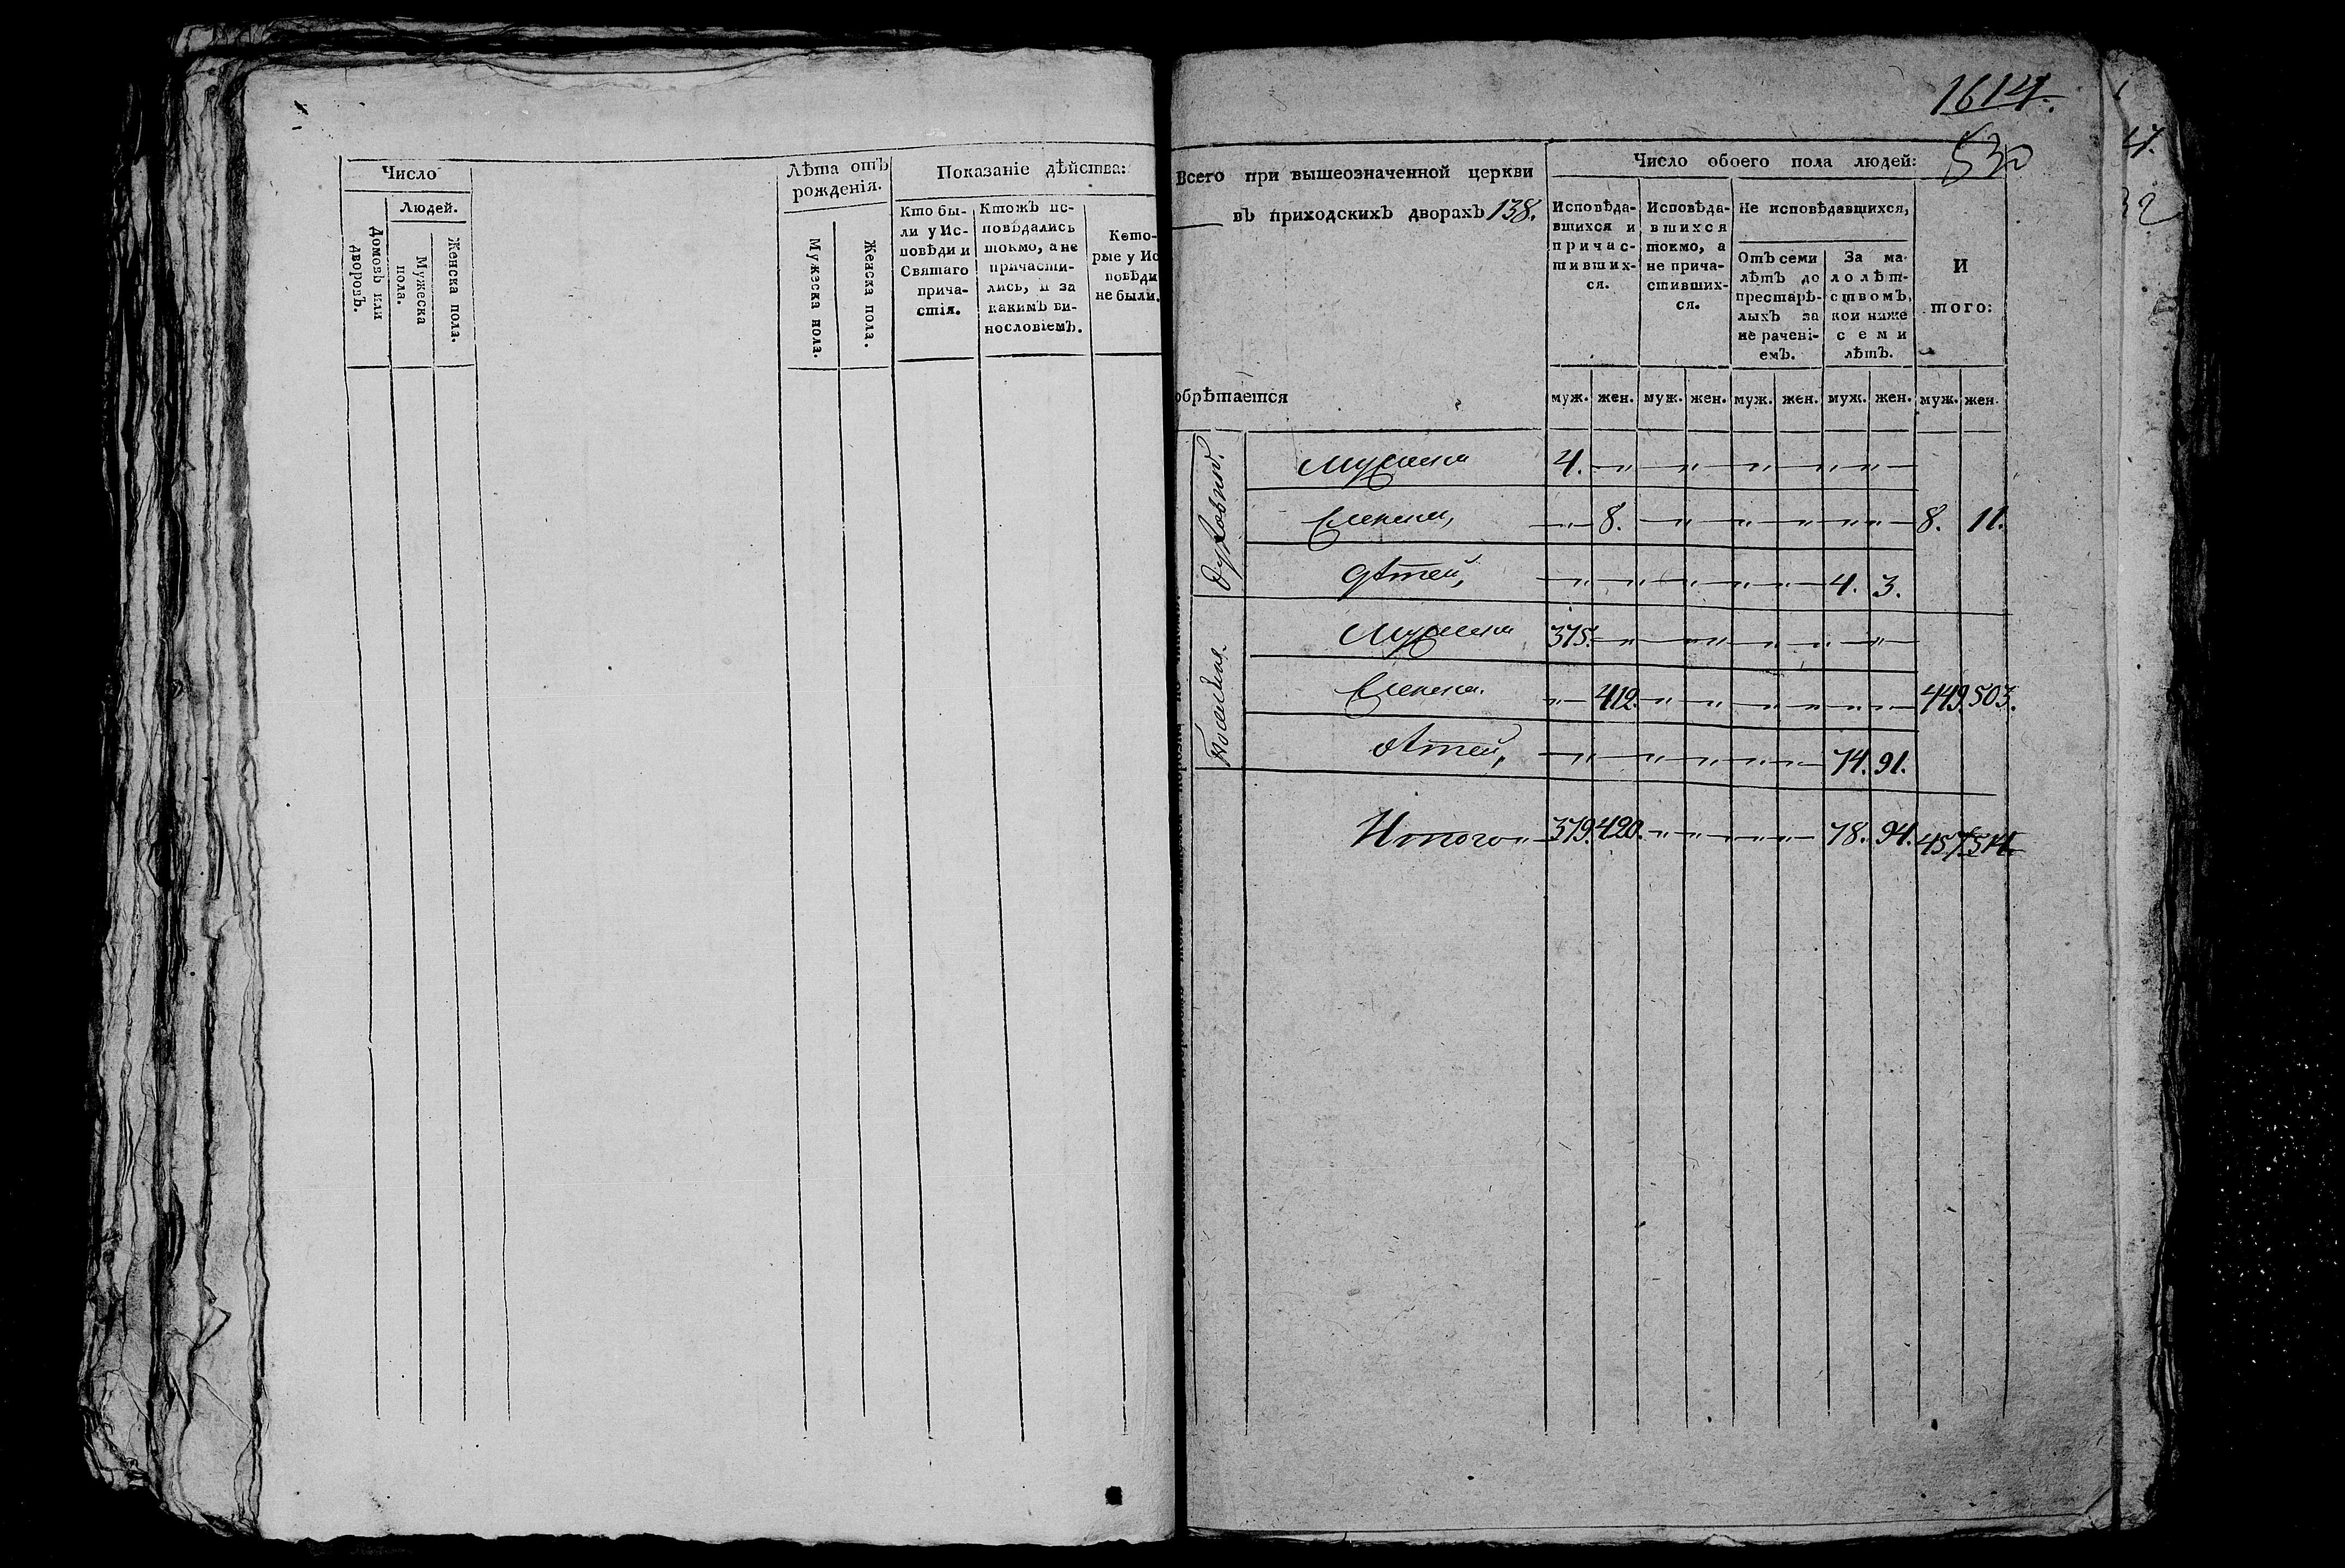 Число
Людей.
Домовъ или дворовъ.
Мужеска пола.
Женска пола.
Лѣта отъ
рожденія.
Мужеска пола.
Женска пола.
Показаніе дѣйства:
Кто бы-
ли у Ис-
повѣди и
Святаго
прича-
стія.
Ктожъ ис-
повѣдались
токмо, а не
причасти-
лись, и за
какимъ ви-
нословіемъ.
Кото-
рые у Ис
повѣди
не были.
1614.
530
Всего при вышеозначенной церкви
въ приходскихъ дворахъ 138.
обрѣтается
Число обоего пола людей:
Исповѣда-
вшихся и
причас-
тивших-
ся.
Исповѣда-
вшихся
токмо, а
не прича-
стивших-
ся.
Не исповѣдавшихся,
Отъ семи
лѣтъ до
престарѣ-
лыхъ за
не рачені-
емъ.
За ма-
лолѣт-
ствомъ,
кои ниже
семи
лѣтъ.
И
того:
муж. жен. муж. жен. муж. жен. муж. жен. муж. жен.
Духовныхъ.
Мужеска 4. — „ — „ — „ — „ — „ —
Женска, — 8. — „ — „ — „ — „ „ — 8. 11.
Дѣтей, — „ — „ — „ — „ — „ — 4. 3.
Поселянъ.
Мужеска 375. — „ — „ — „ — „ — „ —
Женска. „ — 412. — „ — „ — „ — „ — „ — 449. 503.
дѣтей, — „ — „ — „ — „ — „ — 74. 91.
Итого „ — 379. 420. — „ — „ — „ — „ — 78. 94. 457. 514.